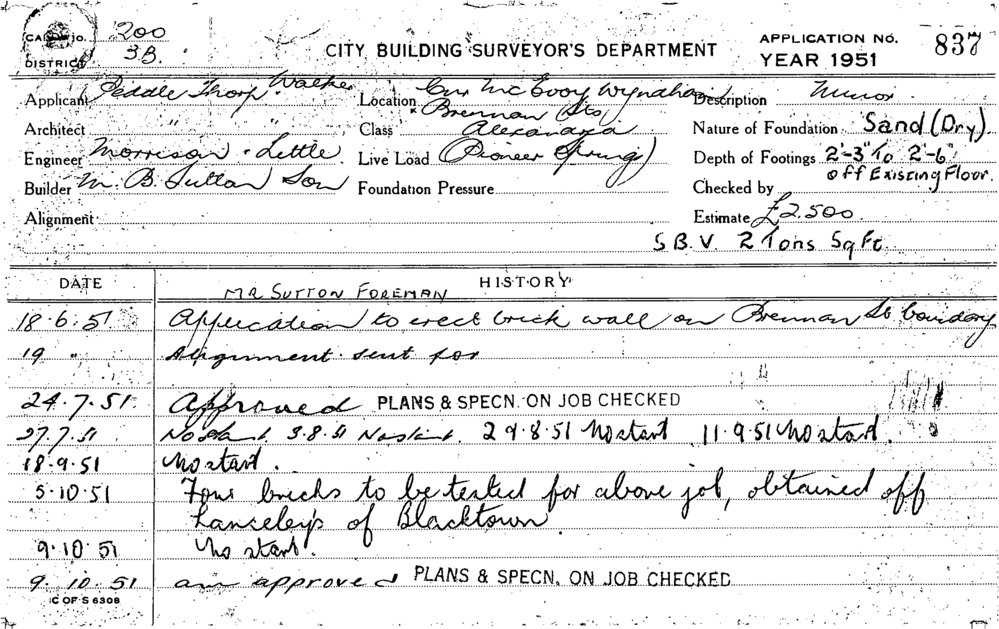 CARD NO. 200
DISTRICT 3B.
CITY BUILDING SURVEYOR'S DEPARTMENT
APPLICATION NO. 837
YEAR 1951
Applicant Peddle Thorp Walker
Location Cnr McEvoy Wyndham
Brennan Sts
Description Minor
Architect " "
Class Alexandria
Nature of Foundation Sand (Dry)
Engineer Morrison & Little
Live Load (Pioneer Spring)
Depth of Footings 2'-3" To 2'-6"
off Existing Floor.
Builder M. B. Sutton Son
Foundation Pressure
Checked by
Alignment
Estimate £2.500
S.B.V. 2 Tons Sq Ft.
DATE HISTORY
MR SUTTON FOREMAN
18.6.51 Application to erect brick wall on Brennan St boundary
19 " Alignment sent for
24.7.51 Approved PLANS & SPECN. ON JOB CHECKED
27.7.51 No start. 3.8.51 No start. 29.8.51 No start 11.9.51 No start.
18.9.51 No start.
5.10.51 Four bricks to be tested for above job, obtained off
of Blacktown
9.10.51 No start.
9.10.51 am approved PLANS & SPECN. ON JOB CHECKED
C OF S 6308